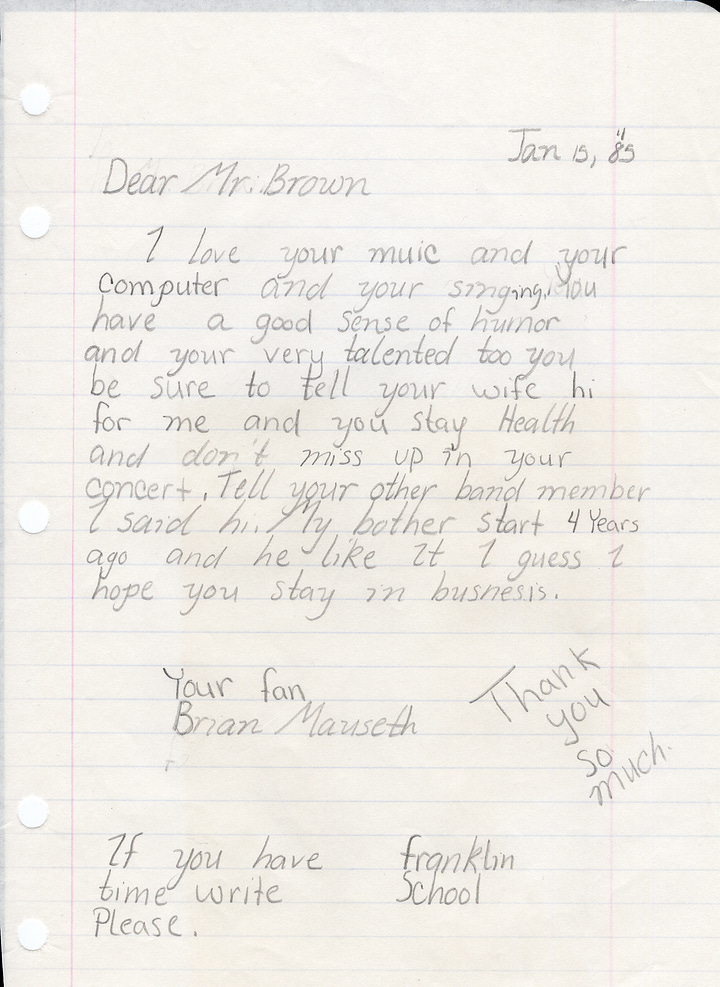 Jan 15, 85
Dear Mr. Brown
I love your muic and your
computer and your singing. You
have a good sense of humor
and your very talented too you
be sure to tell your wife hi
for me and you stay Health
and don't miss up in your
concert. Tell your other band member
I said hi. My bother start 4 Years
ago and he like It I guess I
hope you stay in busnesis.
Your fan
Brian Mauseth
Thank
you
so
much.
If you have
time write
Please.
franklin
School